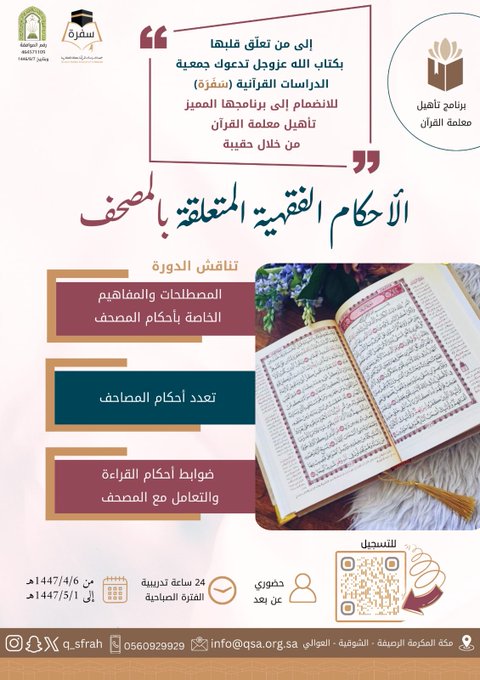 رقم الموافقة
464571109
وتاريخ 1446/9/7هـ
سفرة
إلى من تعلّق قلبها
بكتاب الله عزوجل تدعوك جمعية
الدراسات القرآنية (سَفَرَة)
للانضمام إلى برنامجها المميز
تأهيل معلمة القرآن
من خلال حقيبة
برنامج تأهيل
معلمة القرآن
الأحكام الفقهية المتعلقة بالمصحف
تناقش الدورة
المصطلحات والمفاهيم
الخاصة بأحكام المصحف
تعدد أحكام المصاحف
ضوابط أحكام القراءة
والتعامل مع المصحف
للتسجيل
حضوري
عن بعد
24 ساعة تدريبية
الفترة الصباحية
من 1447/4/6هـ
إلى 1447/5/1هـ
مكة المكرمة الرصيفة - الشوقية - العوالي
info@qsa.org.sa
0560929929
q_sfrah